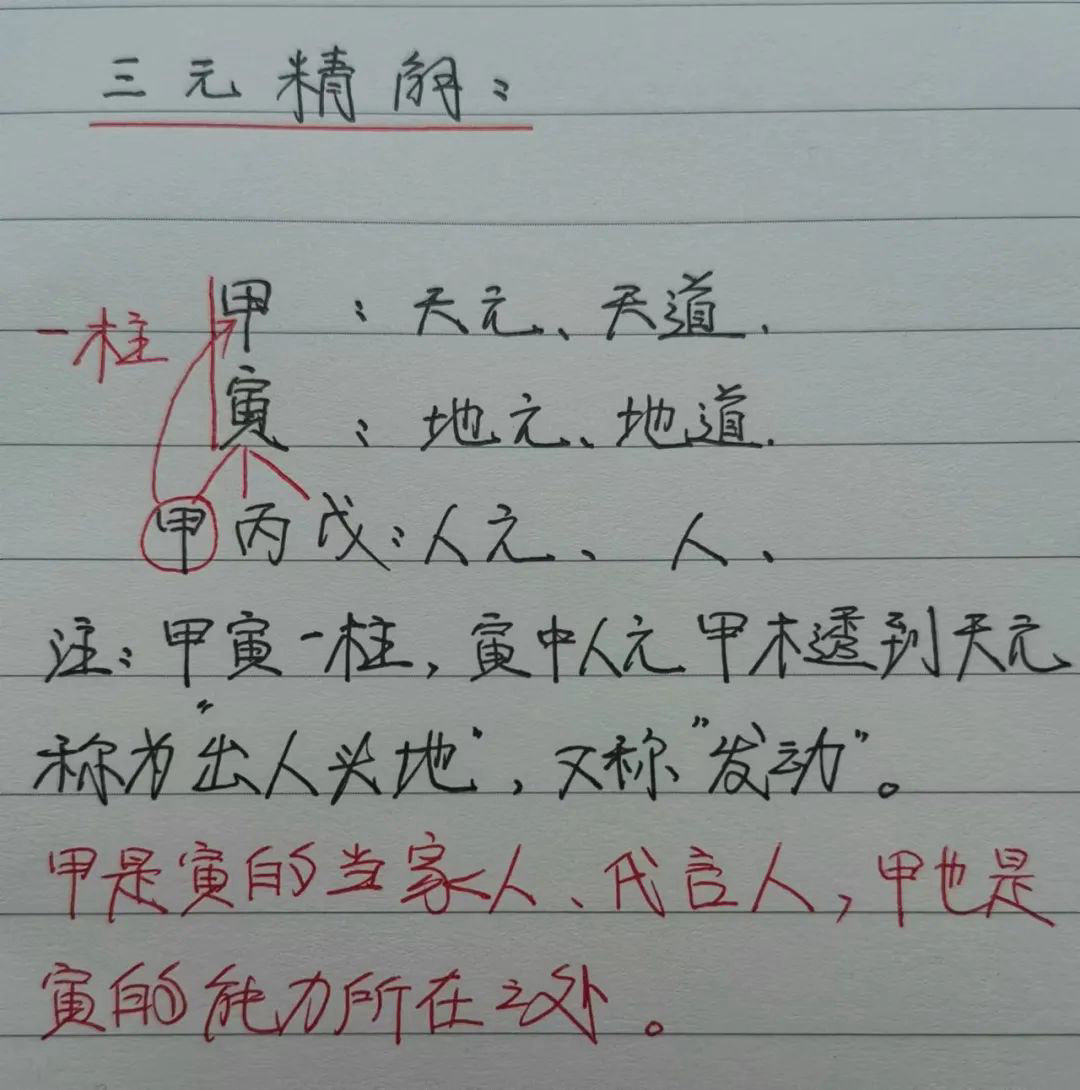 三元精解：
一柱
甲：天元、天道.
寅：地元、地道.
甲丙戊：人元、人、
注：甲寅一柱，寅中人元甲木透到天元
称为“出人头地”，又称“发动”。
甲是寅的当家人、代言人，甲也是
寅的能力所在之处。